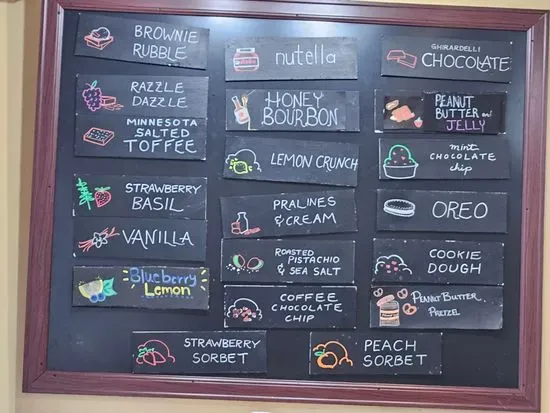 BROWNIE
RUBBLE
RAZZLE
DAZZLE
MINNESOTA
SALTED
TOFFEE
STRAWBERRY
BASIL
VANILLA
Blueberry
Lemon
nutella
HONEY
BOURBON
LEMON CRUNCH
PRALINES
& CREAM
ROASTED
PISTACHIO
& SEA SALT
COFFEE
CHOCOLATE
CHIP
GHIRARDELLI
CHOCOLATE
PEANUT
BUTTER and
JELLY
mint
CHOCOLATE
chip
OREO
COOKIE
DOUGH
PEANUT BUTTER
PRETZEL
STRAWBERRY
SORBET
PEACH
SORBET